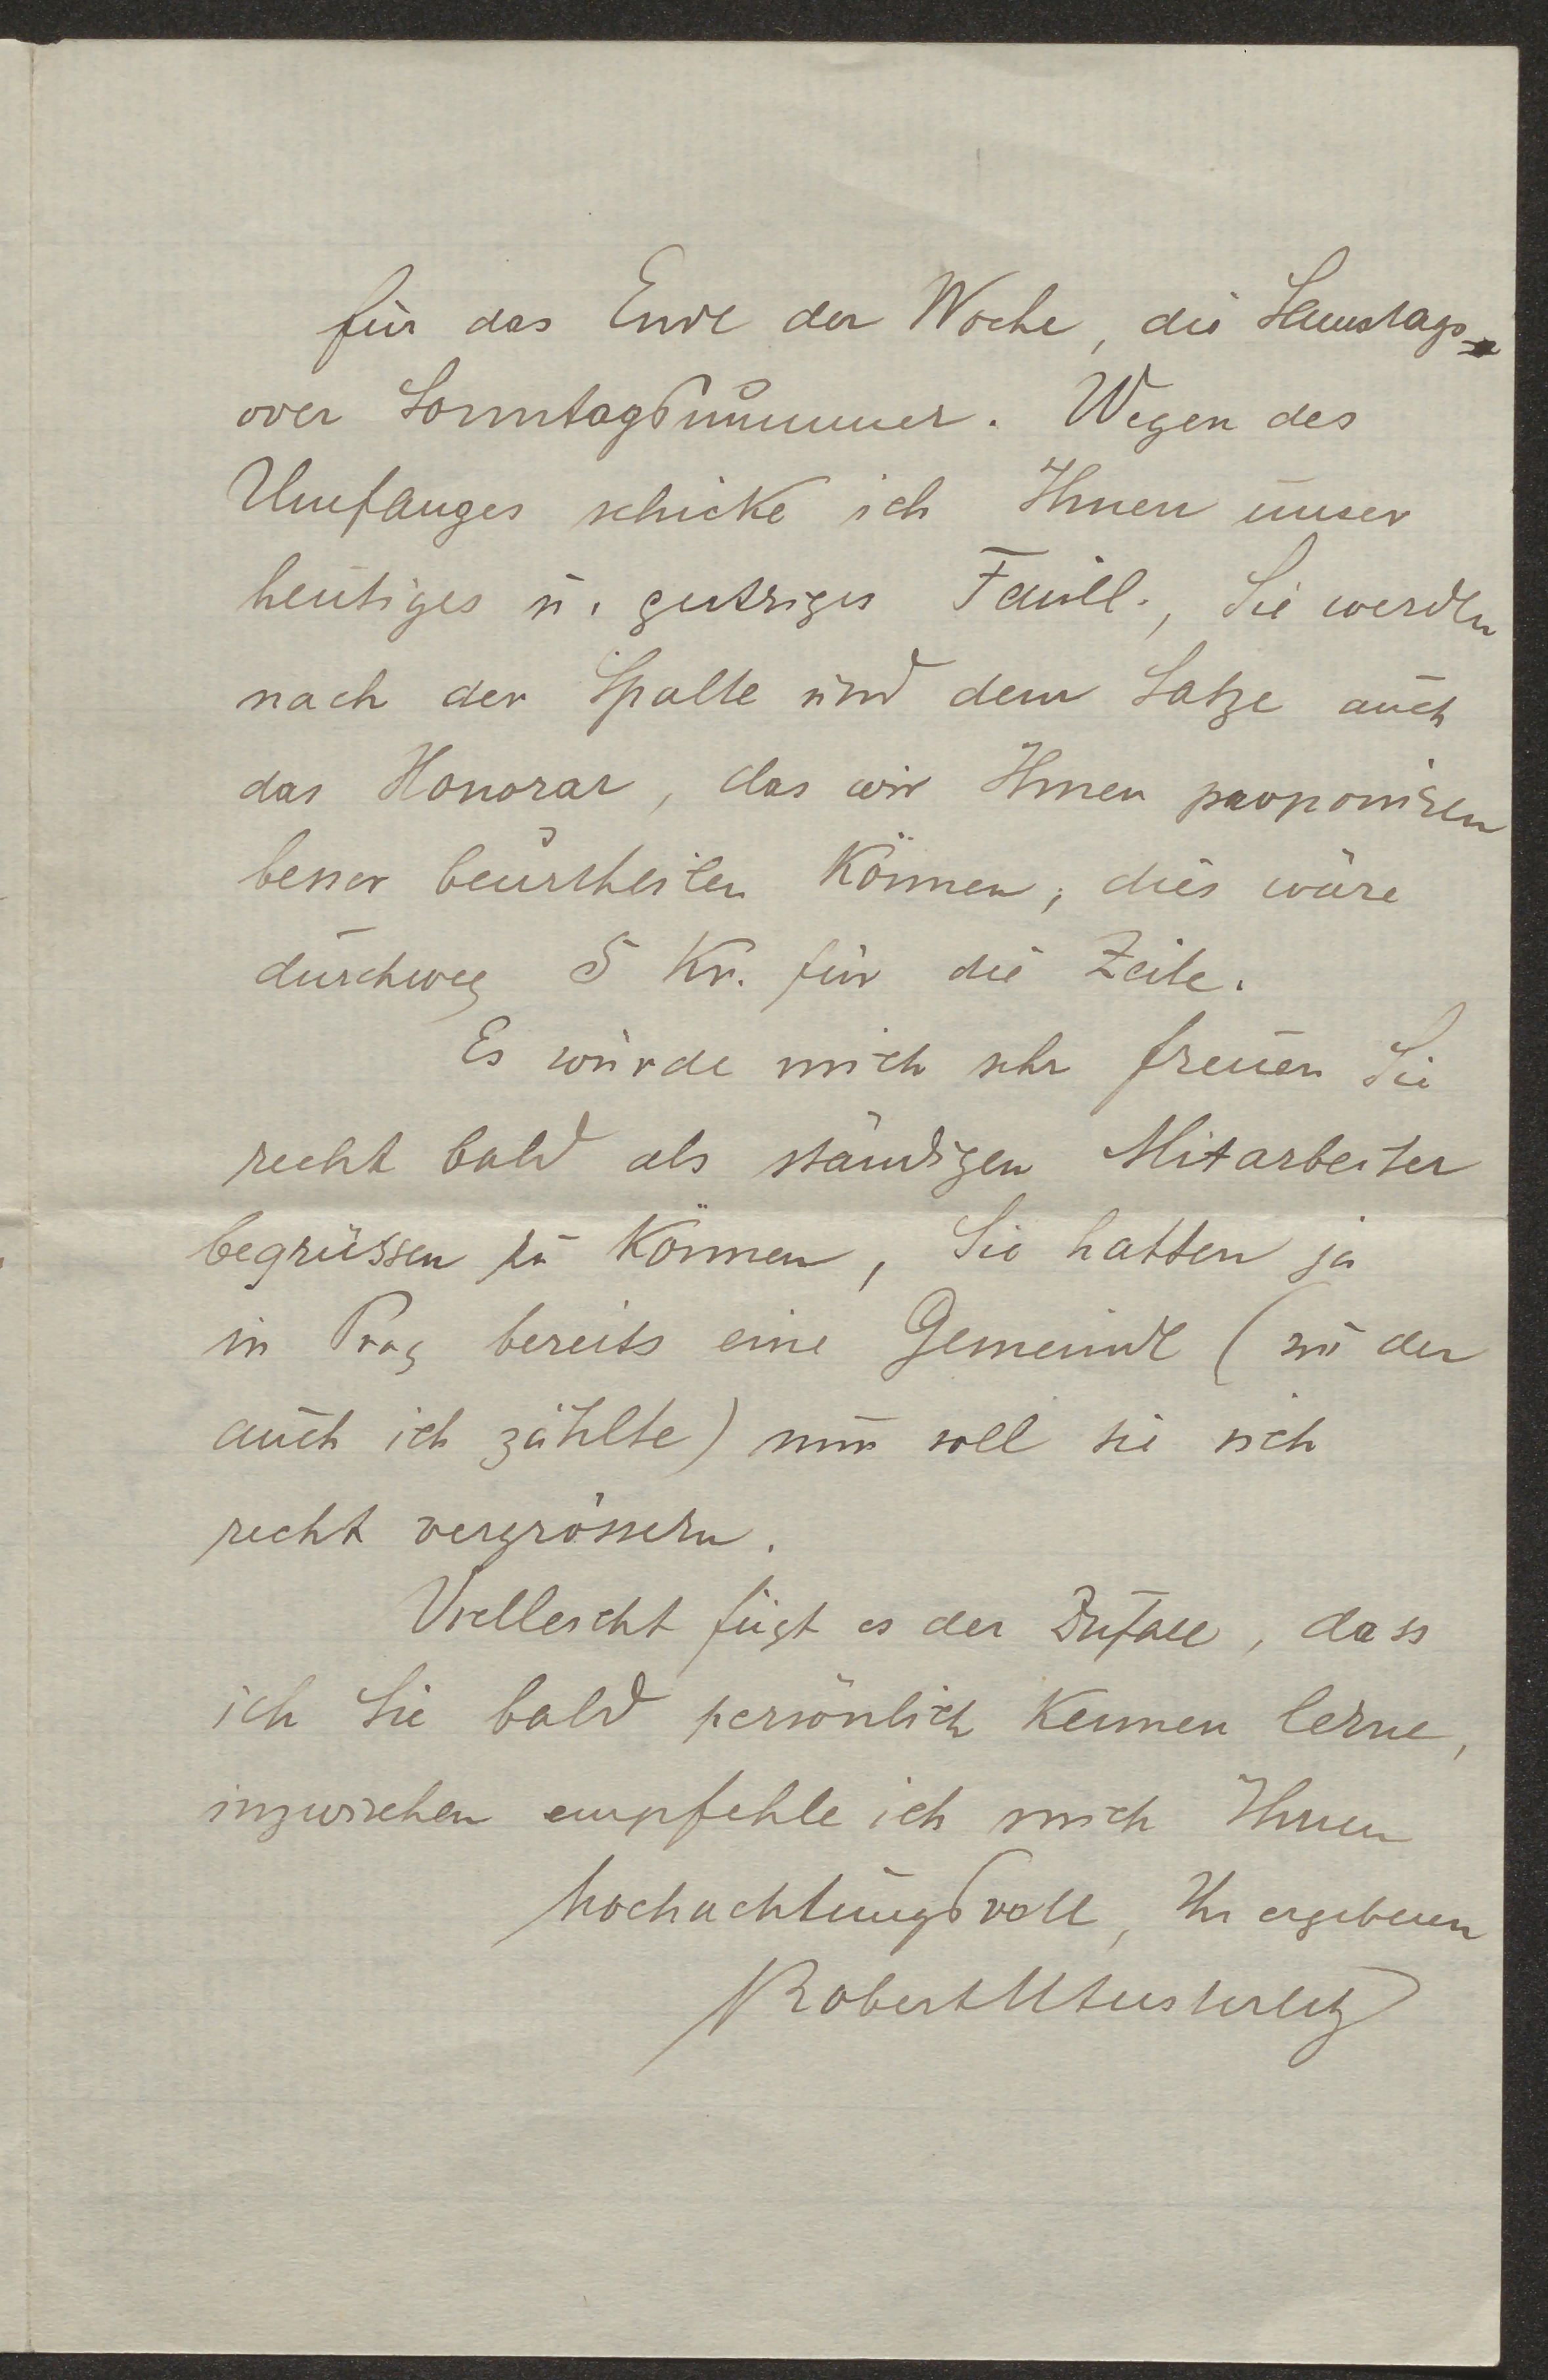 für das Ende der Woche, die Samstags-
oder Sonntagsnummer. Wegen des
Umfanges schicke ich Ihnen unser
heutiges u. gestriges Feuill., Sie werden
nach der Spalte und dem Satze auch
das Honorar, das wir Ihnen proponiren
besser beurtheilen können, dies wäre
durchweg 5 Kr. für die Zeile.
Es würde mich sehr freuen Sie
recht bald als ständigen Mitarbeiter
begrüssen zu können, Sie hatten ja
in Prag bereits eine Gemeinde (zu der
auch ich zählte) nun soll sie sich
recht vergrössern.
Vielleicht fügt es der Zufall, dass
ich Sie bald persönlich kennen lerne,
inzwischen empfehle ich mich Ihnen
hochachtungsvoll, Ihr ergebener
Robert Austerlitz